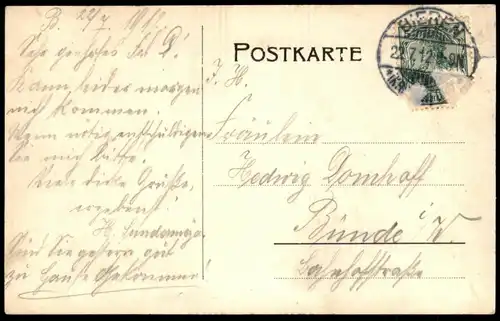 B. 22/7 1912
Sehr geehrtes Frl. D.!
Kann leider morgen
nicht kommen.
Wenn nötig entschuldigen
Sie mich bitte.
Viele dicke Grüße,
ergebenst!
H.
Sind Sie gestern gut
zu Hause gekommen!
POSTKARTE
22.7.12
Fräulein
Hedwig Domhoff
Bünde i/W.
Bahnhofstraße